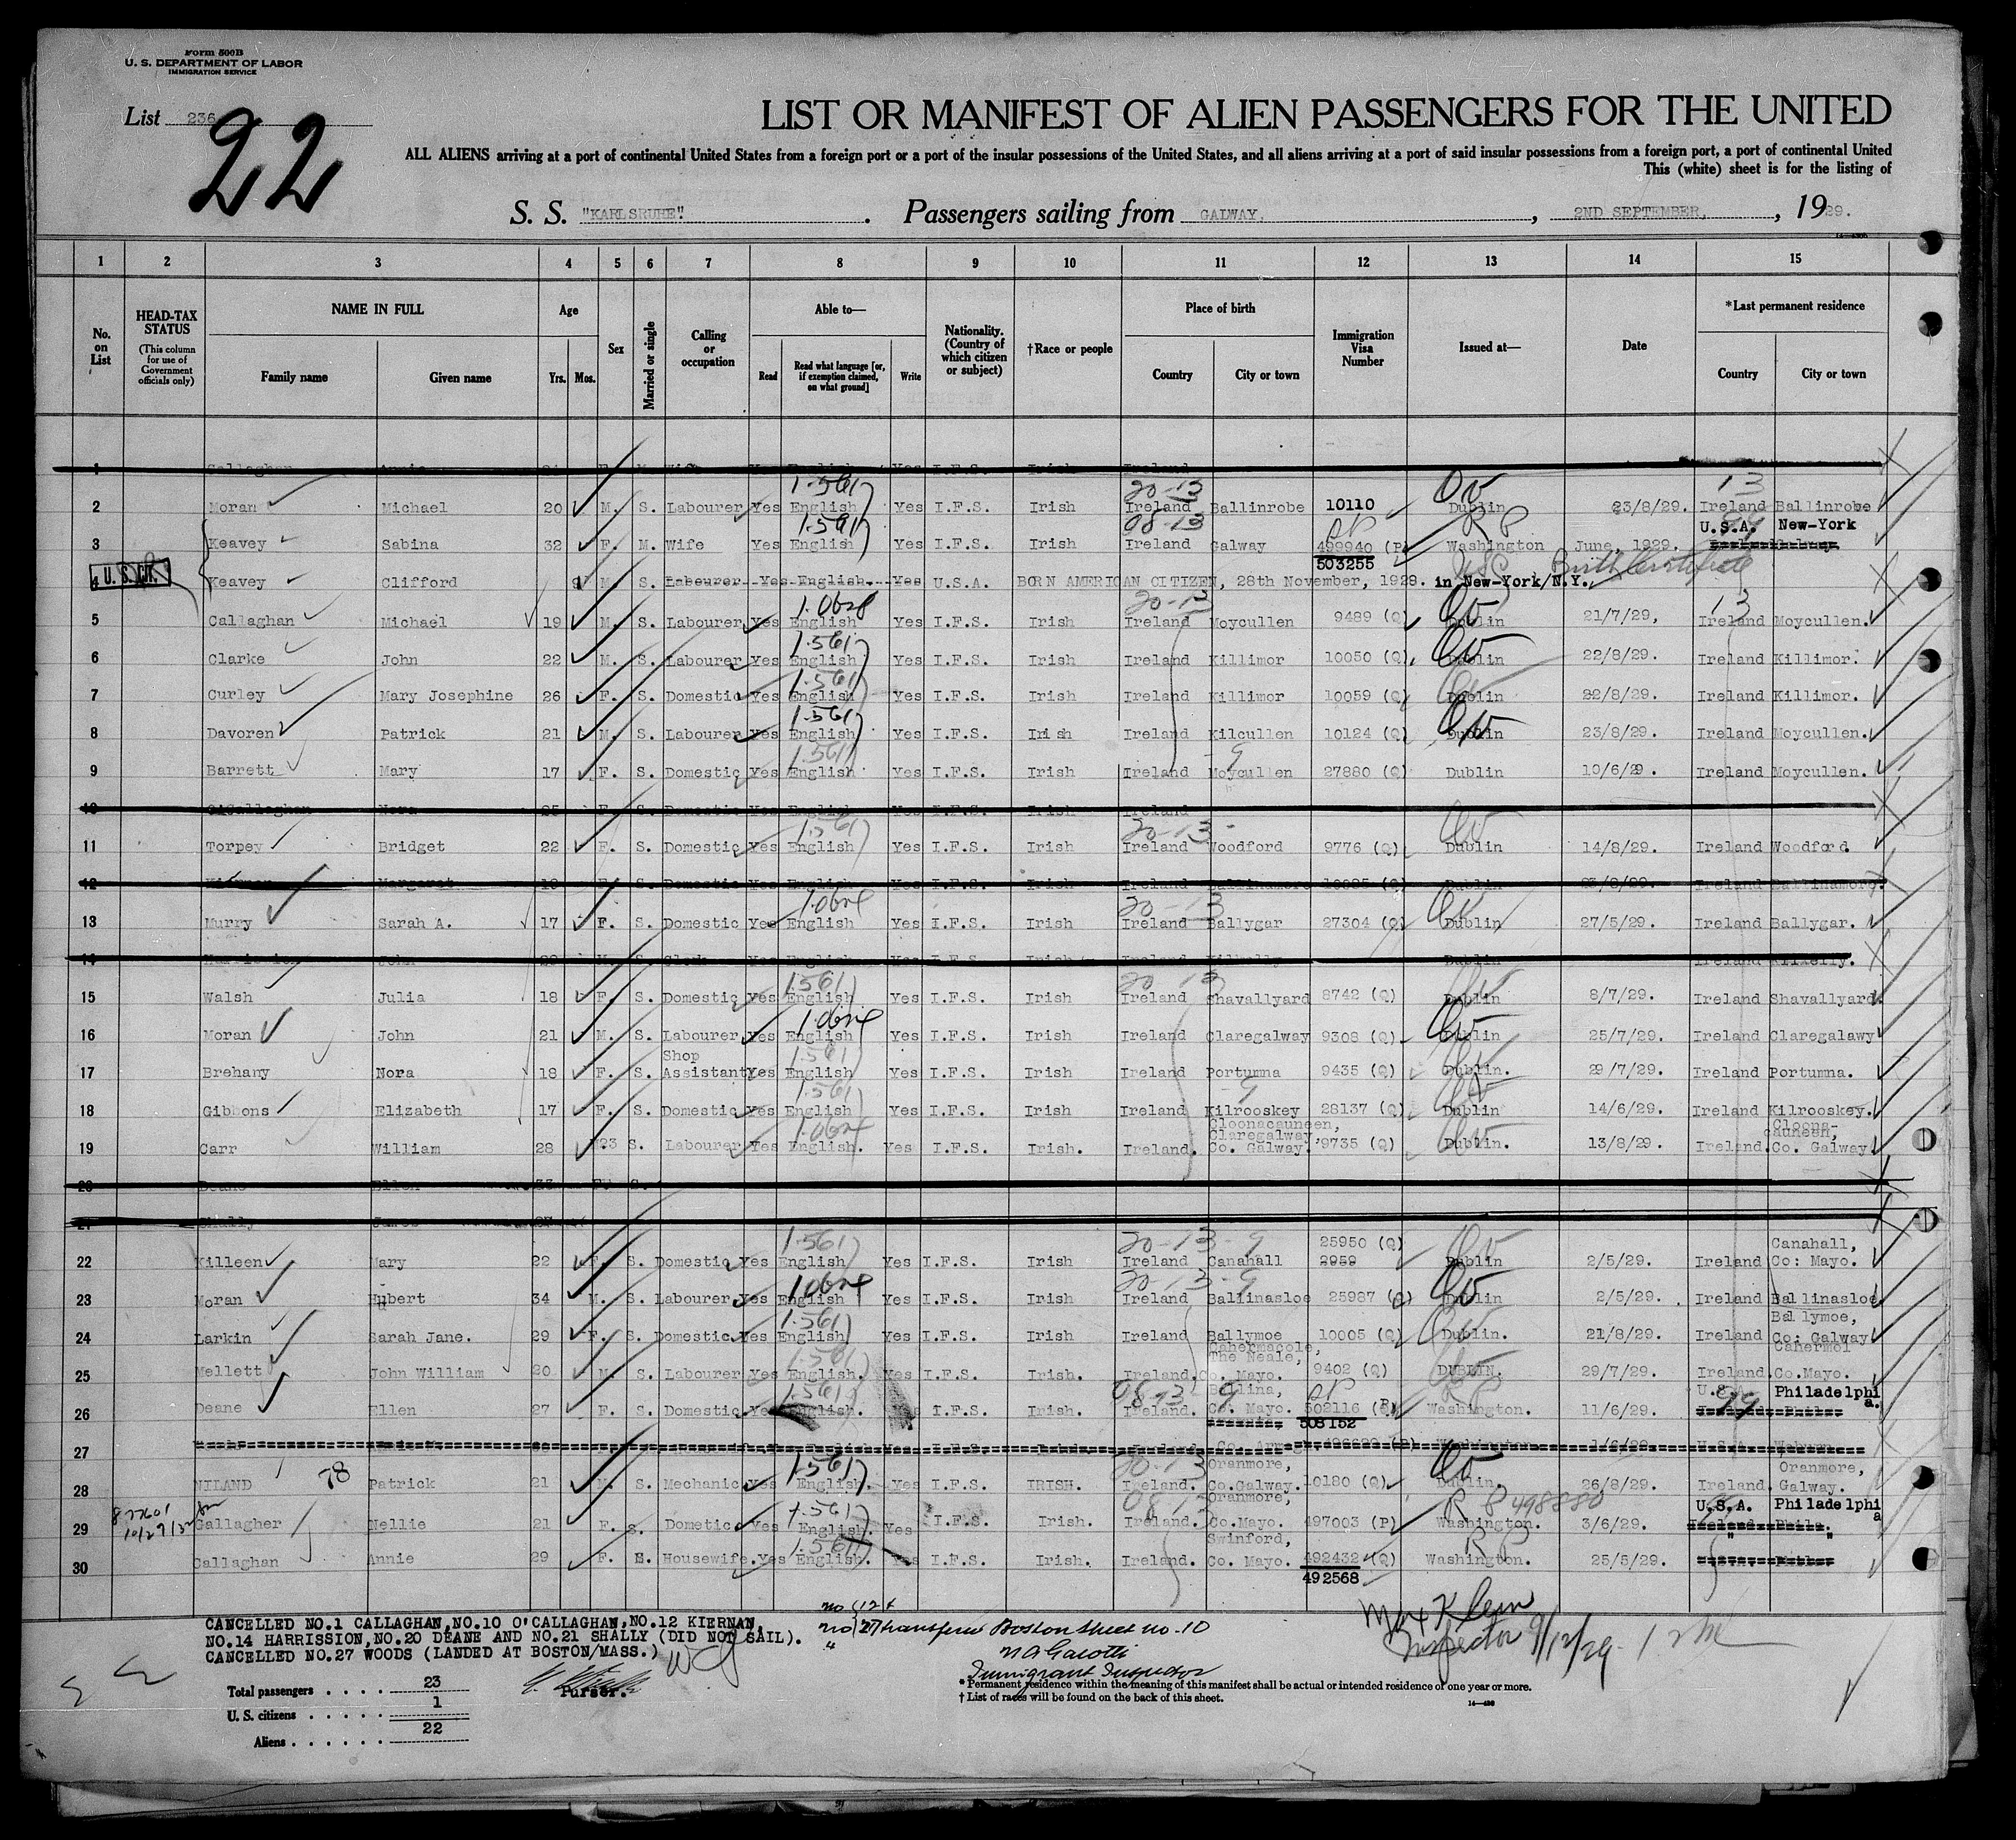 Form 500B
U. S. DEPARTMENT OF LABOR
IMMIGRATION SERVICE
List 236
22
LIST OR MANIFEST OF ALIEN PASSENGERS FOR THE UNITED
ALL ALIENS arriving at a port of continental United States from a foreign port or a port of the insular possessions of the United States, and all aliens arriving at a port of said insular possessions from a foreign port, a port of continental United
This (white) sheet is for the listing of
S. S. "KARLSRUHE". Passengers sailing from GALWAY, 2ND SEPTEMBER, 1929.
1 2 3 4 5 6 7 8 9 10 11 12 13 14 15
No. on List
HEAD-TAX STATUS (This column for use of Government officials only)
NAME IN FULL Family name Given name
Age Yrs. Mos.
Sex
Married or single
Calling or occupation
Able to— Read Read what language [or, if exemption claimed, on what ground] Write
Nationality. (Country of which citizen or subject)
†Race or people
Place of birth Country City or town
Immigration Visa Number
Issued at—
Date
*Last permanent residence Country City or town
1 Callaghan Annie Wife Yes English Yes I.F.S. Irish Ireland
2 Moran Michael 20 M. S. Labourer Yes English Yes I.F.S. Irish Ireland Ballinrobe 10110 Dublin 23/8/29. Ireland Ballinrobe
3 Keavey Sabina 32 F. M. Wife Yes English Yes I.F.S. Irish Ireland Galway 499940 (P) 503255 Washington June, 1929. U.S.A. New-York
U.S. CIT. 4 Keavey Clifford 9 M. S. Labourer Yes English. Yes U.S.A. BORN AMERICAN CITIZEN, 28th November, 1928. in New-York/N.Y. Birth Certificate
5 Callaghan Michael 19 M. S. Labourer Yes English Yes I.F.S. Irish Ireland Moycullen 9489 (Q) Dublin 21/7/29, Ireland Moycullen.
6 Clarke John 22 M. S. Labourer Yes English Yes I.F.S. Irish Ireland Killimor 10050 (Q) Dublin 22/8/29. Ireland Killimor.
7 Curley Mary Josephine 26 F. S. Domestic Yes English Yes I.F.S. Irish Ireland Killimor 10059 (Q) Dublin 22/8/29. Ireland Killimor.
8 Davoren Patrick 21 M. S. Labourer Yes English Yes I.F.S. Irish Ireland Kilcullen 10124 (Q) Dublin 23/8/29. Ireland Moycullen.
9 Barrett Mary 17 F. S. Domestic Yes English Yes I.F.S. Irish Ireland Moycullen 27880 (Q) Dublin 10/6/29. Ireland Moycullen.
10 O'Callaghan Nora 25 F. S. Domestic Yes English Yes I.F.S. Irish Ireland
11 Torpey Bridget 22 F. S. Domestic Yes English Yes I.F.S. Irish Ireland Woodford 9776 (Q) Dublin 14/8/29. Ireland Woodford
12 Kiernan Margaret 19 F. S. Domestic Yes English Yes I.F.S. Irish Ireland Ballinamore Dublin 23/8/29. Ireland Ballinamore.
13 Murry Sarah A. 17 F. S. Domestic Yes English Yes I.F.S. Irish Ireland Ballygar 27304 (Q) Dublin 27/5/29. Ireland Ballygar.
14 John Clerk Yes English I.F.S. Irish Ireland Dublin Ireland
15 Walsh Julia 18 F. S. Domestic Yes English Yes I.F.S. Irish Ireland Shavallyard 8742 (Q) Dublin 8/7/29. Ireland Shavallyard.
16 Moran John 21 M. S. Labourer Yes English Yes I.F.S. Irish Ireland Claregalway 9308 (Q) Dublin 25/7/29. Ireland Claregalawy
17 Brehany Nora 18 F. S. Shop Assistant Yes English Yes I.F.S. Irish Ireland Portumna 9435 (Q) Dublin. 29/7/29. Ireland Portumna.
18 Gibbons Elizabeth 17 F. S. Domestic Yes English Yes I.F.S. Irish Ireland Kilrooskey 28137 (Q) Dublin 14/6/29. Ireland Kilrooskey.
19 Carr William 28 S. Labourer Yes English. Yes I.F.S. Irish. Ireland. Cloonacauneen, Claregalway, Co. Galway. 9735 (Q) Dublin. 13/8/29. Ireland. Cloona-cauneen, Co. Galway
20 Deane Ellen 33 F. S.
21 Shally James
22 Killeen Mary 22 F. S. Domestic Yes English Yes I.F.S. Irish Ireland Canahall 25950 (Q) 2959 Dublin 2/5/29. Ireland Canahall, Co: Mayo.
23 Moran Hubert 34 M. S. Labourer Yes English Yes I.F.S. Irish Ireland Ballinasloe 25987 (Q) Dublin 2/5/29. Ireland Ballinasloe
24 Larkin Sarah Jane. 29 F. S. Domestic Yes English Yes I.F.S. Irish Ireland Ballymoe 10005 (Q) Dublin. 21/8/29. Ireland Ballymoe, Co: Galway
25 Mellett John William 20 M. S. Labourer Yes English. Yes I.F.S. Irish. Ireland. Cahermacole, The Neale, Co. Mayo. 9402 (Q) DUBLIN. 29/7/29. Ireland. Cahermol Co.Mayo.
26 Deane Ellen 27 F. S. Domestic Yes English. I.F.S. Irish. Ireland. Ballina, Co. Mayo. 502116 (P) 508152 Washington. 11/6/29. U.S. Philadelphia.
27 English I.F.S. Irish. Ireland. Washington 1/6/29 U.S.A.
28 NILAND 78 Patrick 21 M. S. Mechanic Yes English. Yes I.F.S. IRISH. Ireland. Oranmore, Co.Galway. 10180 (Q) Dublin. 26/8/29. Ireland. Oranmore, Galway.
29 Gallagher Nellie 21 F. S. Dometic Yes English. Yes I.F.S. Irish. Ireland. Oranmore, Co.Mayo. 497003 (P) R P 498880 Washington. 3/6/29. U.S.A. Philadelphia
30 Callaghan Annie 29 F. Housewife. Yes English. Yes I.F.S. Irish. Ireland. Swinford, Co. Mayo. 492432 (Q) 492568 Washington. 25/5/29.
CANCELLED NO.1 CALLAGHAN, NO.10 O'CALLAGHAN, NO.12 KIERNAN,
NO.14 HARRISSION, NO.20 DEANE AND NO.21 SHALLY (DID NOT SAIL).
CANCELLED NO.27 WOODS (LANDED AT BOSTON/MASS.)
no 27 Transfered Boston Sheet no. 10
Immigrant Inspector
Max Klein
Inspector 9/12/29
Total passengers 23
U. S. citizens 1
Aliens 22
Purser.
* Permanent residence within the meaning of this manifest shall be actual or intended residence of one year or more.
† List of races will be found on the back of this sheet.